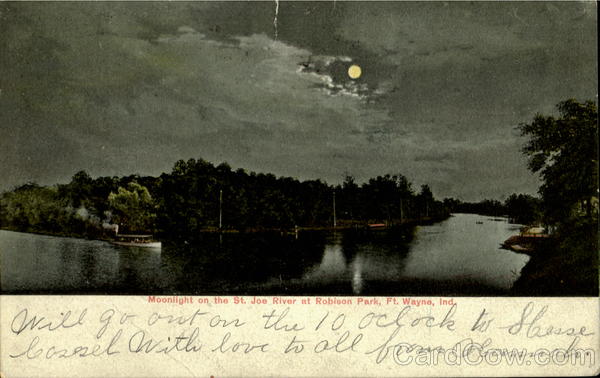 Moonlight on the St. Joe River at Robison Park, Ft. Wayne, Ind.
Will go out on the 10 oclock to
With love to all from
CardCow.com